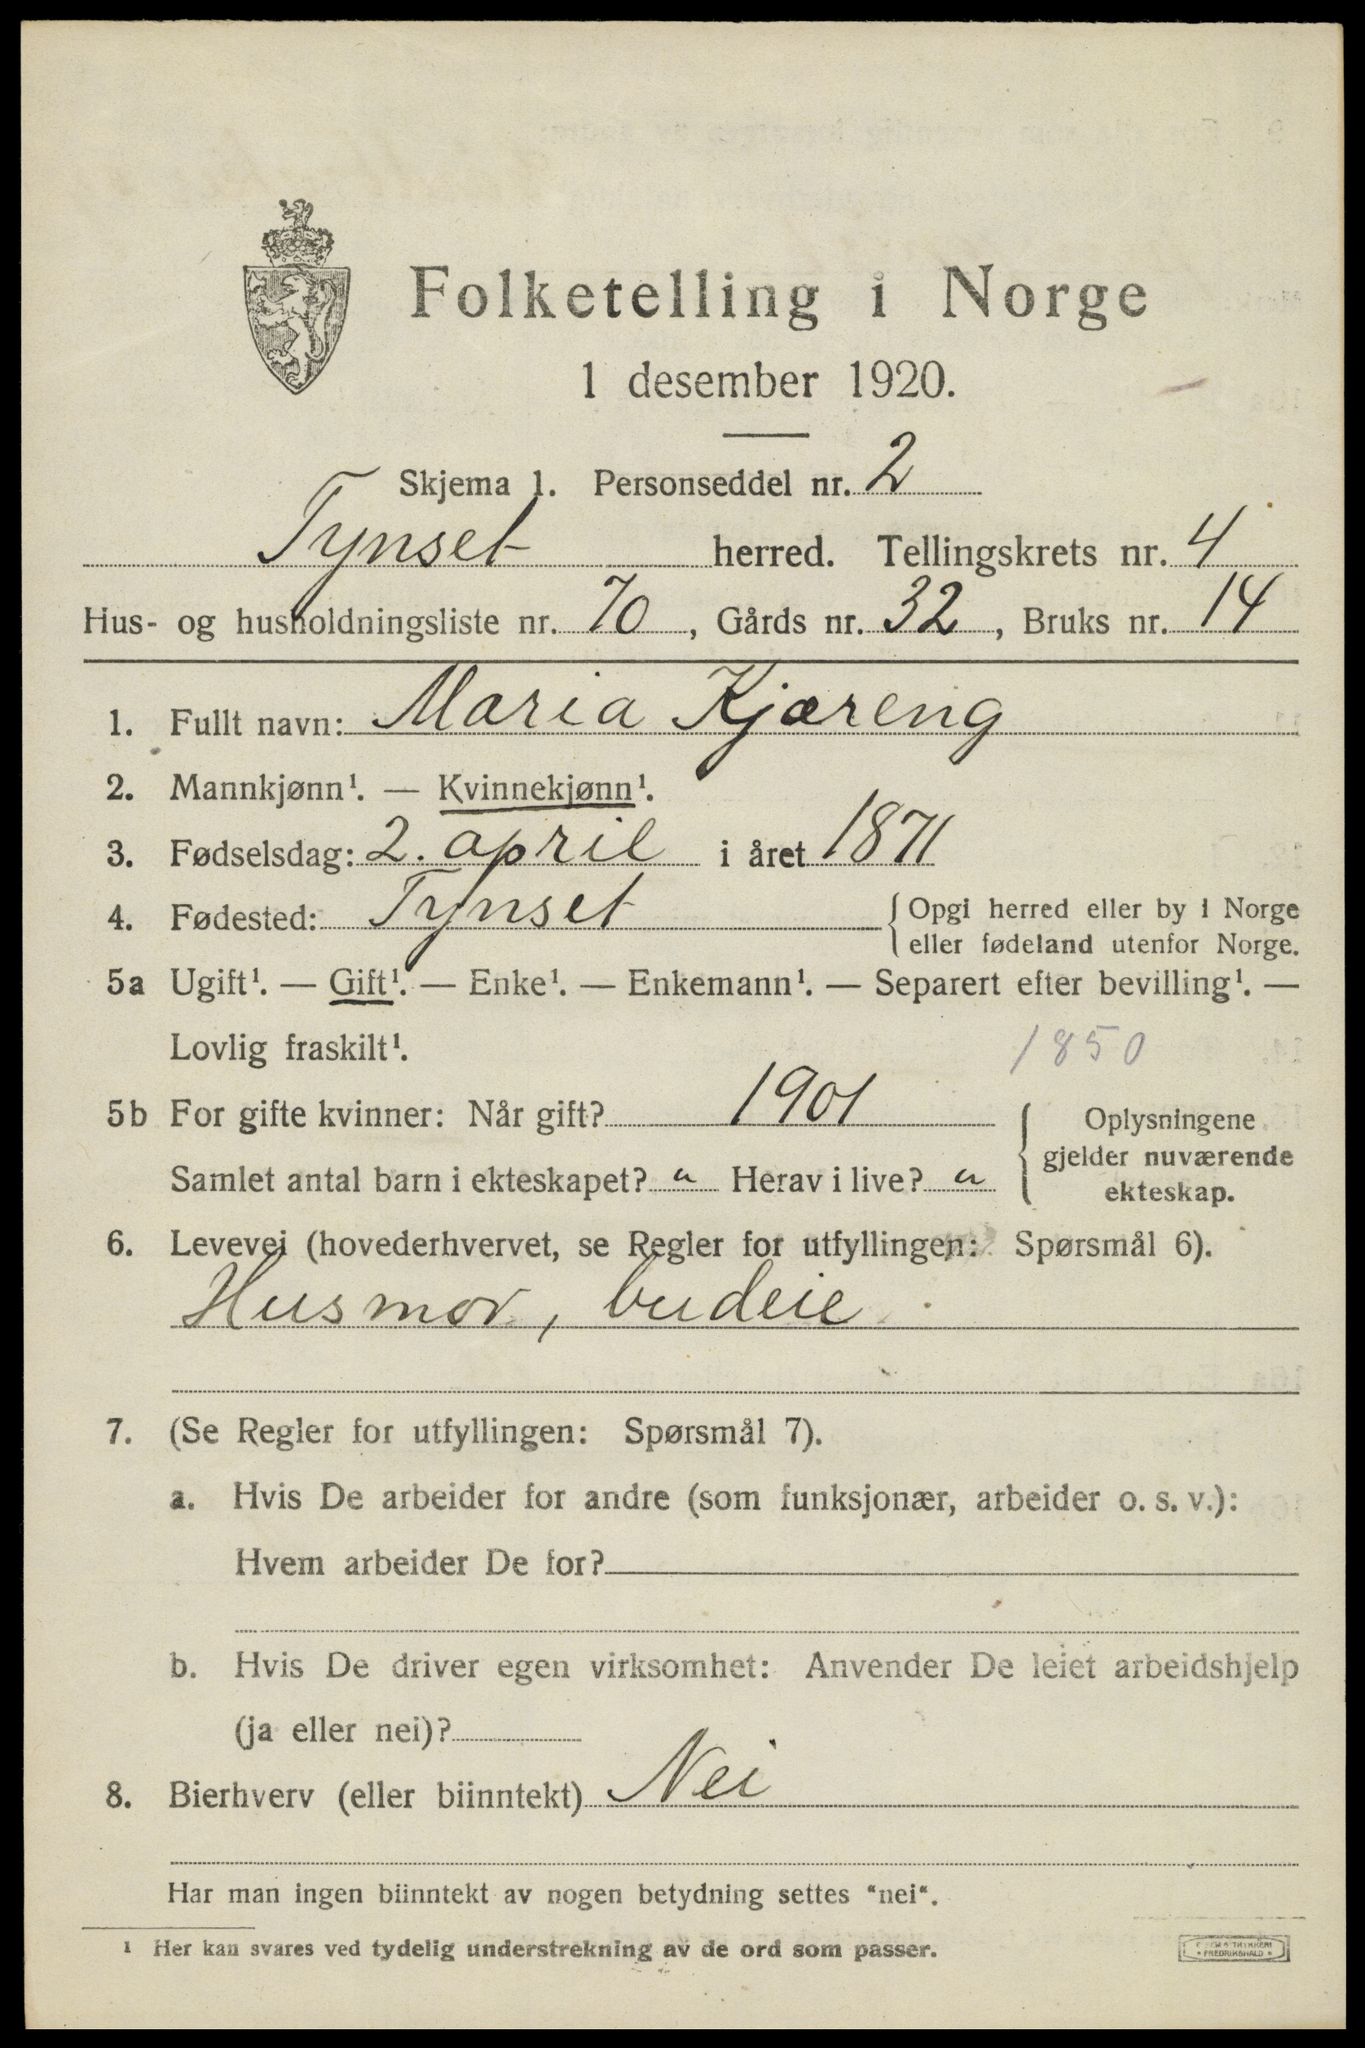 Folketelling i Norge
1 desember 1920.
Skjema 1. Personseddel nr. 2
Tynset herred. Tellingskrets nr. 4
Hus- og husholdningsliste nr. 70, Gårds nr. 32, Bruks nr. 14
1. Fullt navn: Maria Kjæreng
2. Mannkjønn¹. — Kvinnekjønn¹.
3. Fødselsdag: 2. april i året 1871
4. Fødested: Tynset {Opgi herred eller by i Norge
eller fødeland utenfor Norge.
5a Ugift¹. — Gift¹. — Enke¹. — Enkemann¹. — Separert efter bevilling¹. —
Lovlig fraskilt¹. 1850
5b For gifte kvinner: Når gift? 1901 Oplysningene
gjelder nuværende
Samlet antal barn i ekteskapet? " Herav i live? " ekteskap.
6. Levevei (hovederhvervet, se Regler for utfyllingen: Spørsmål 6).
Husmor, budeie
7. (Se Regler for utfyllingen: Spørsmål 7).
a. Hvis De arbeider for andre (som funksjonær, arbeider o. s. v.):
Hvem arbeider De for?
b. Hvis De driver egen virksomhet: Anvender De leiet arbeidshjelp
(ja eller nei)?
8. Bierhverv (eller biinntekt) Nei
Har man ingen biinntekt av nogen betydning settes "nei".
¹ Her kan svares ved tydelig understrekning av de ord som passer.
FREDRIKSHALD